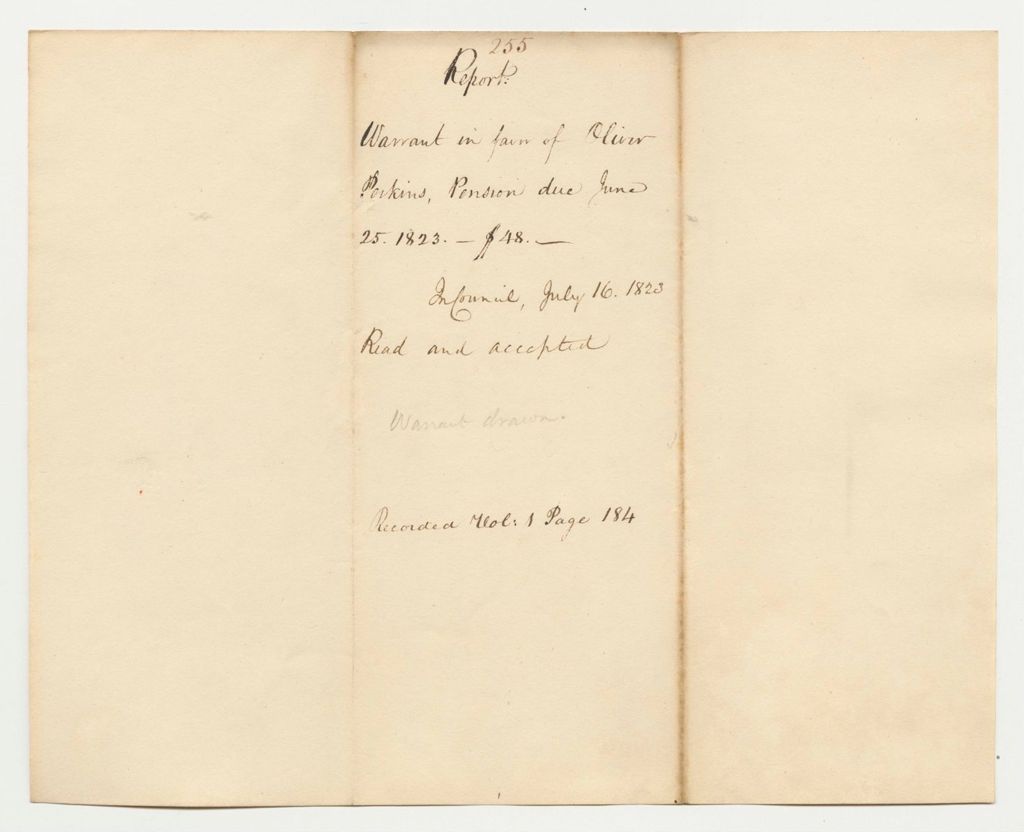 255
Report.
Warrant in favor of Oliver
Perkins, Pension due June
25. 1823. — $48. —
In Council, July 16. 1823
Read and accepted
Warrant drawn.
Recorded Vol: 1 Page 184